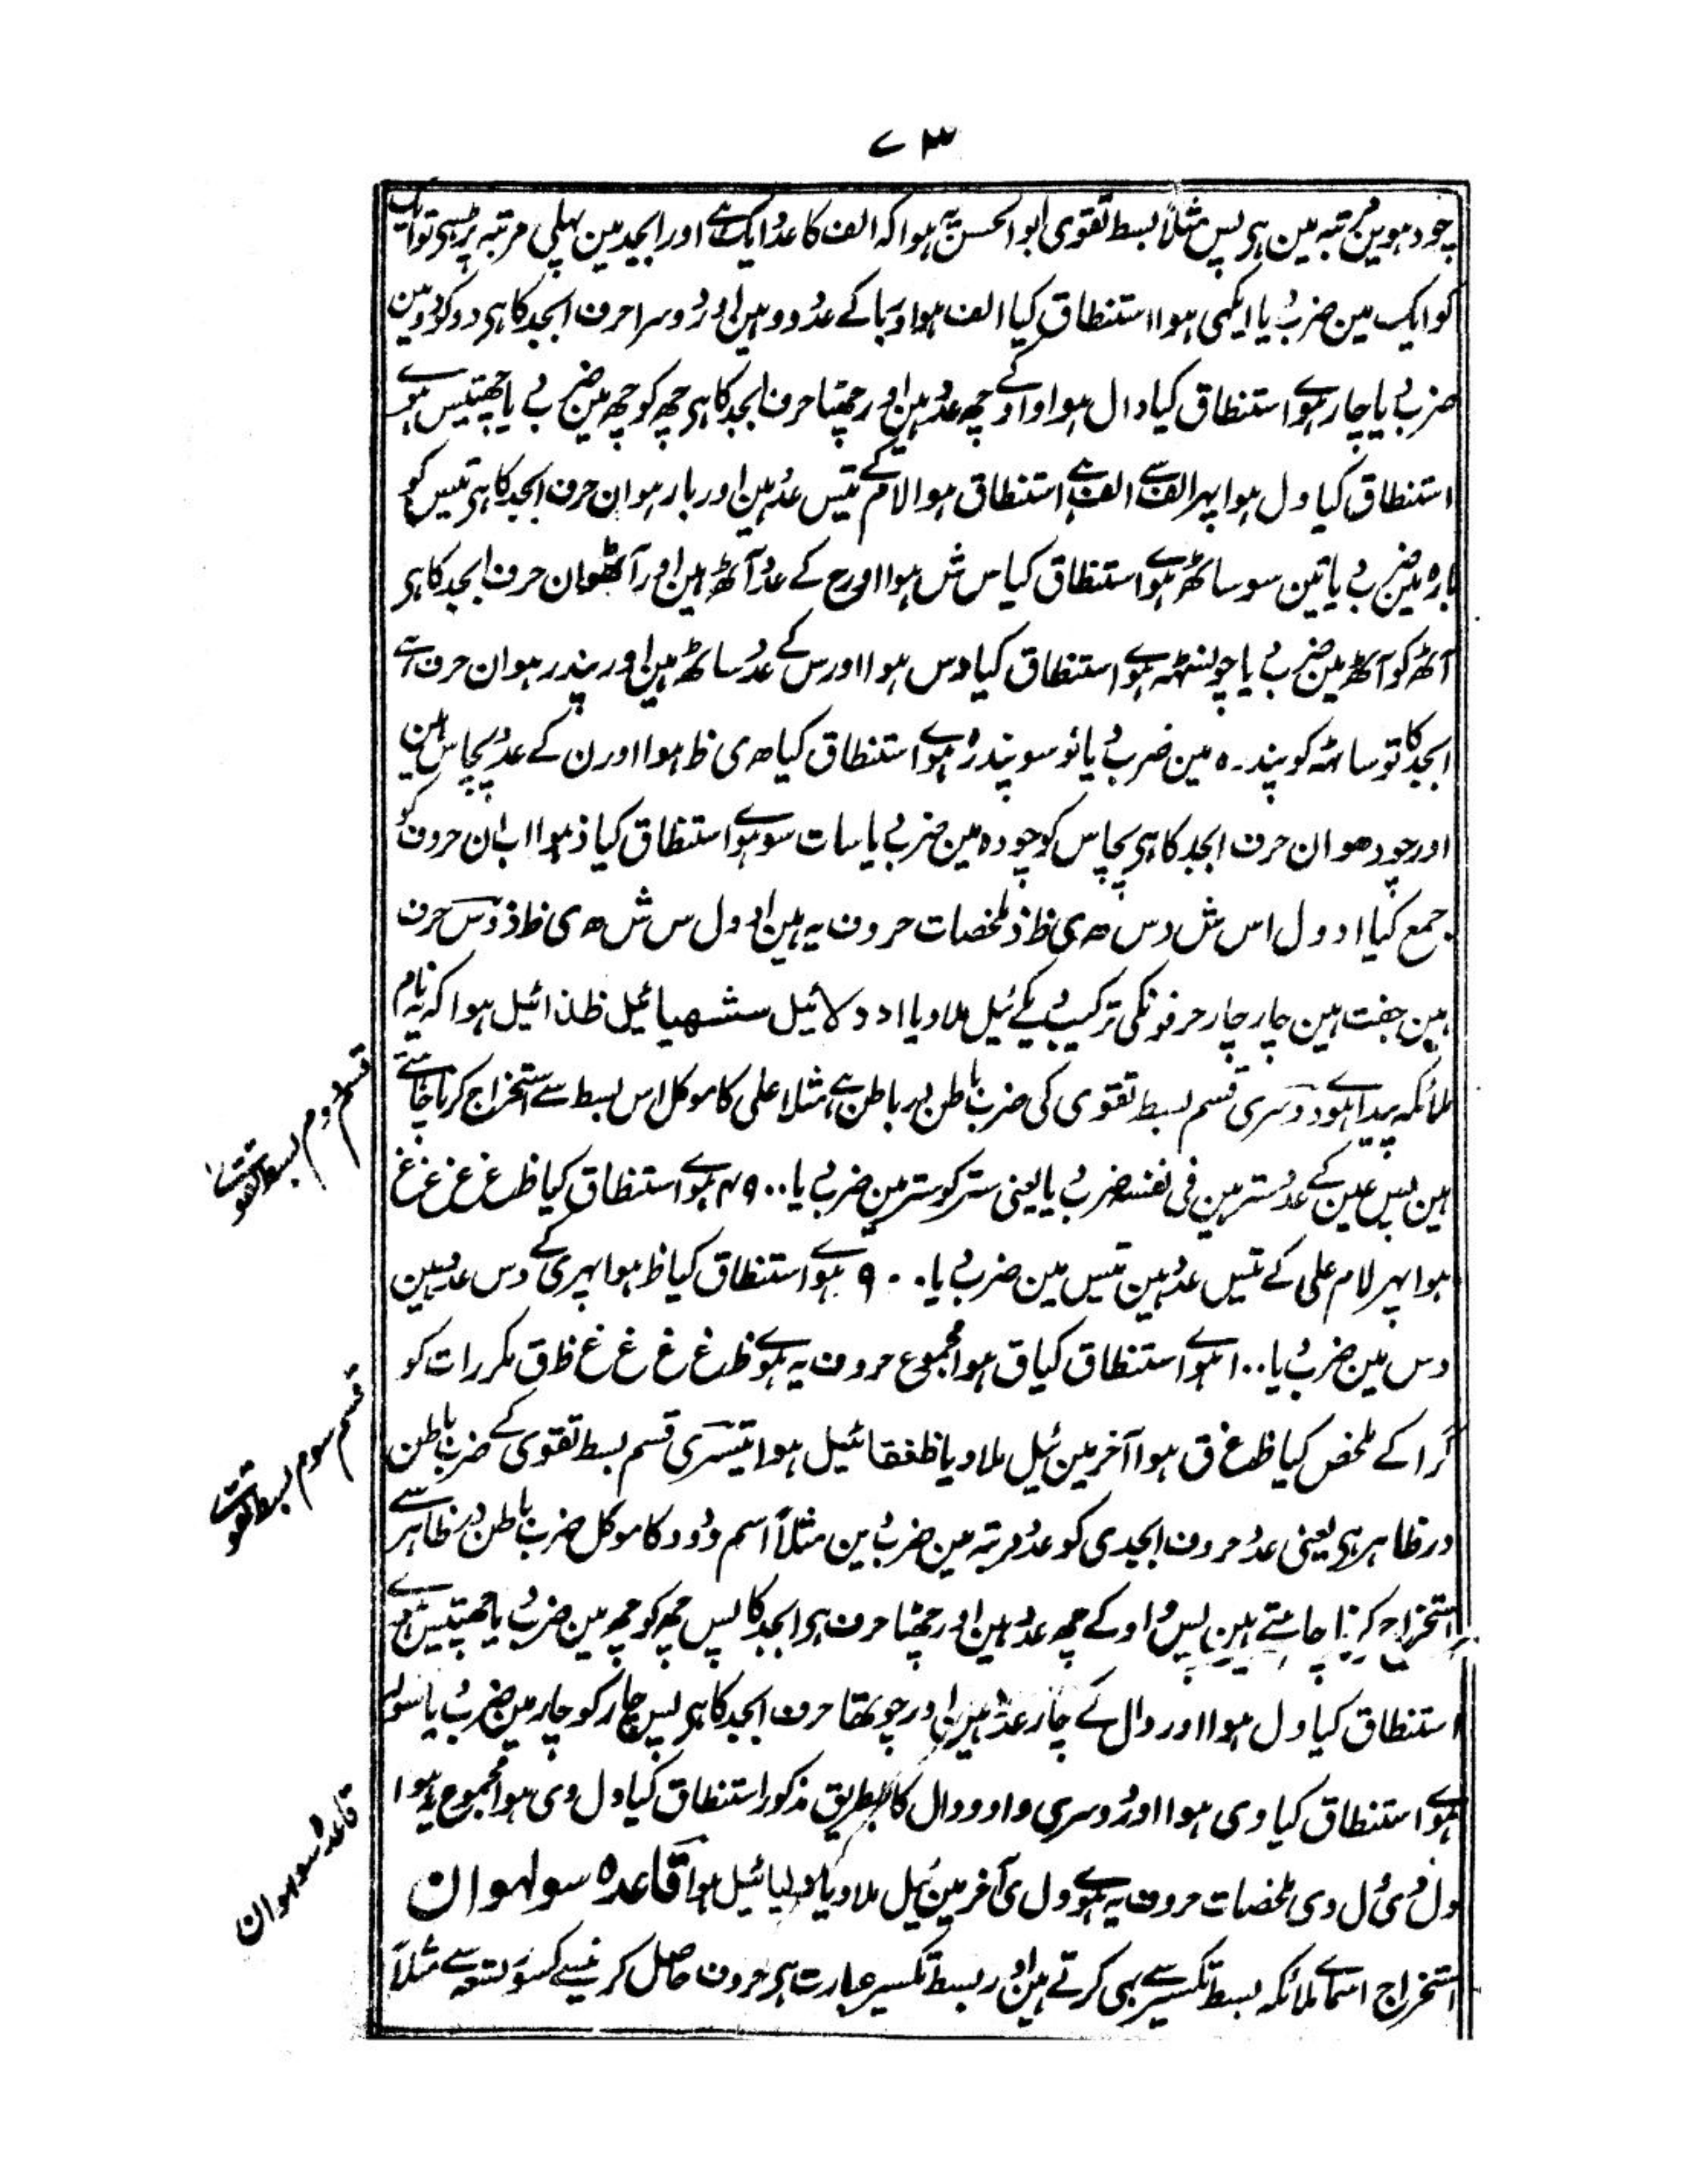 ۷۳
چودہوین مرتبہ مین ہی پس مثلاً بسط تقوی ابوالحسن یہ ہوا کہ الف کا عدد ایک ہے اور ابجد مین پہلی مرتبہ پر ہی تو ایک
کو ایک مین ضرب دیا ایکہی ہوا استنطاق کیا الف ہوا و با کے عدد دو ہین اور دوسرا حرف ابجد کا ہی دو کو دو مین
ضرب دیا چار ہوے استنطاق کیا دال ہوا واو کے چھ عدد ہین اور چھٹا حرف ابجد کا ہی چھ کو چھ مین ضرب دیا چھتیس ہوے
استنطاق کیا و ل ہوا پہر الف سے الف ہے استنطاق ہوا لام کے تیس عدد ہین اور بارہوان حرف ابجد کا ہی تیس کو
بارہ مین ضرب دیا تین سو ساٹھ ہوے استنطاق کیا س ش ہوا اور ح کے عدد آٹھ ہین اور آٹھوان حرف ابجد کا ہی
آٹھ کو آٹھ مین ضرب دیا چونسٹھہ ہوے استنطاق کیا د س ہوا اور س کے عدد ساٹھ ہین اور پندرہوان حرف ہے
ابجد کا تو ساٹھہ کو پندرہ مین ضرب دیا نو سو پندرہ ہوے استنطاق کیا ہ ی ظ ہوا اور ن کے عدد پچاس ہین
اور چودھوان حرف ابجد کا ہی پچاس کو چودہ مین ضرب دیا سات سو ہوے استنطاق کیا ذ ہوا اب ان حروف کو
جمع کیا ا د و ل ا س ش د س ہ ی ظ ذ ملخصات حروف یہ ہین ا د و ل س ش ہ ی ظ ذ دس حرف
ہین جفت ہین چار چار حرفونکی ترکیب دیکے ئیل ملادیا ادولائیل سشھیائیل ظذائیل ہوا کہ یہ نام
ملائکہ پیدا ہوے دوسری قسم بسط تقوی کی ضرب باطن در باطن ہے مثلا علی کا موکل اس بسط سے استخراج کرنا چاہتے
قسم دوم بسط تقوی
ہین پس عین کے عدد ستر ہین فی نفسہ ضرب دیا یعنی ستر کو ستر مین ضرب دیا ۴۹۰۰ ہوے استنطاق کیا ظ غ غ غ غ
ہوا پہر لام علی کے تیس عدد ہین تیس مین ضرب دیا ۹۰۰ ہوے استنطاق کیا ظ ہوا پہر ی کے دس عدد ہین
دس مین ضرب دیا ۱۰۰ ہوے استنطاق کیا ق ہوا مجموع حروف یہ ہوے ظ غ غ غ غ ظ ق مکررات کو
گرا کے ملخص کیا ظ غ ق ہوا آخر مین ئیل ملادیا ظغقائیل ہوا تیسری قسم بسط تقوی کے ضرب باطن
قسم سوم بسط تقوی
در ظاہر ہی یعنی عدد حروف ابجدی کو عدد مرتبہ مین ضرب دین مثلاً اسم ودود کا موکل ضرب باطن در ظاہر سے
استخراج کرنا چاہتے ہین پس واو کے چھ عدد ہین اور چھٹا حرف ہی ابجد کا پس چھ کو چھ مین ضرب دیا چھتیس ہوے
استنطاق کیا و ل ہوا اور دال کے چار عدد ہین اور چوتھا حرف ابجد کا ہی پس چار کو چار مین ضرب دیا سولہ
ہوے استنطاق کیا و ی ہوا اور دوسری واو و دال کا بطریق مذکور استنطاق کیا و ل و ی ہوا مجموع یہ ہوا
و ل و ی و ل و ی ملخصات حروف یہ ہوے و ل ی آخر مین ئیل ملادیا ولیائیل ہوا قاعدہ سولہوان
قاعدہ سولہوان
استخراج اسماے ملائکہ بسط تکسیر سے بہی کرتے ہین اور بسط تکسیر عبارت ہی حروف حاصل کرنیسے کسور تسعہ سے مثلاً